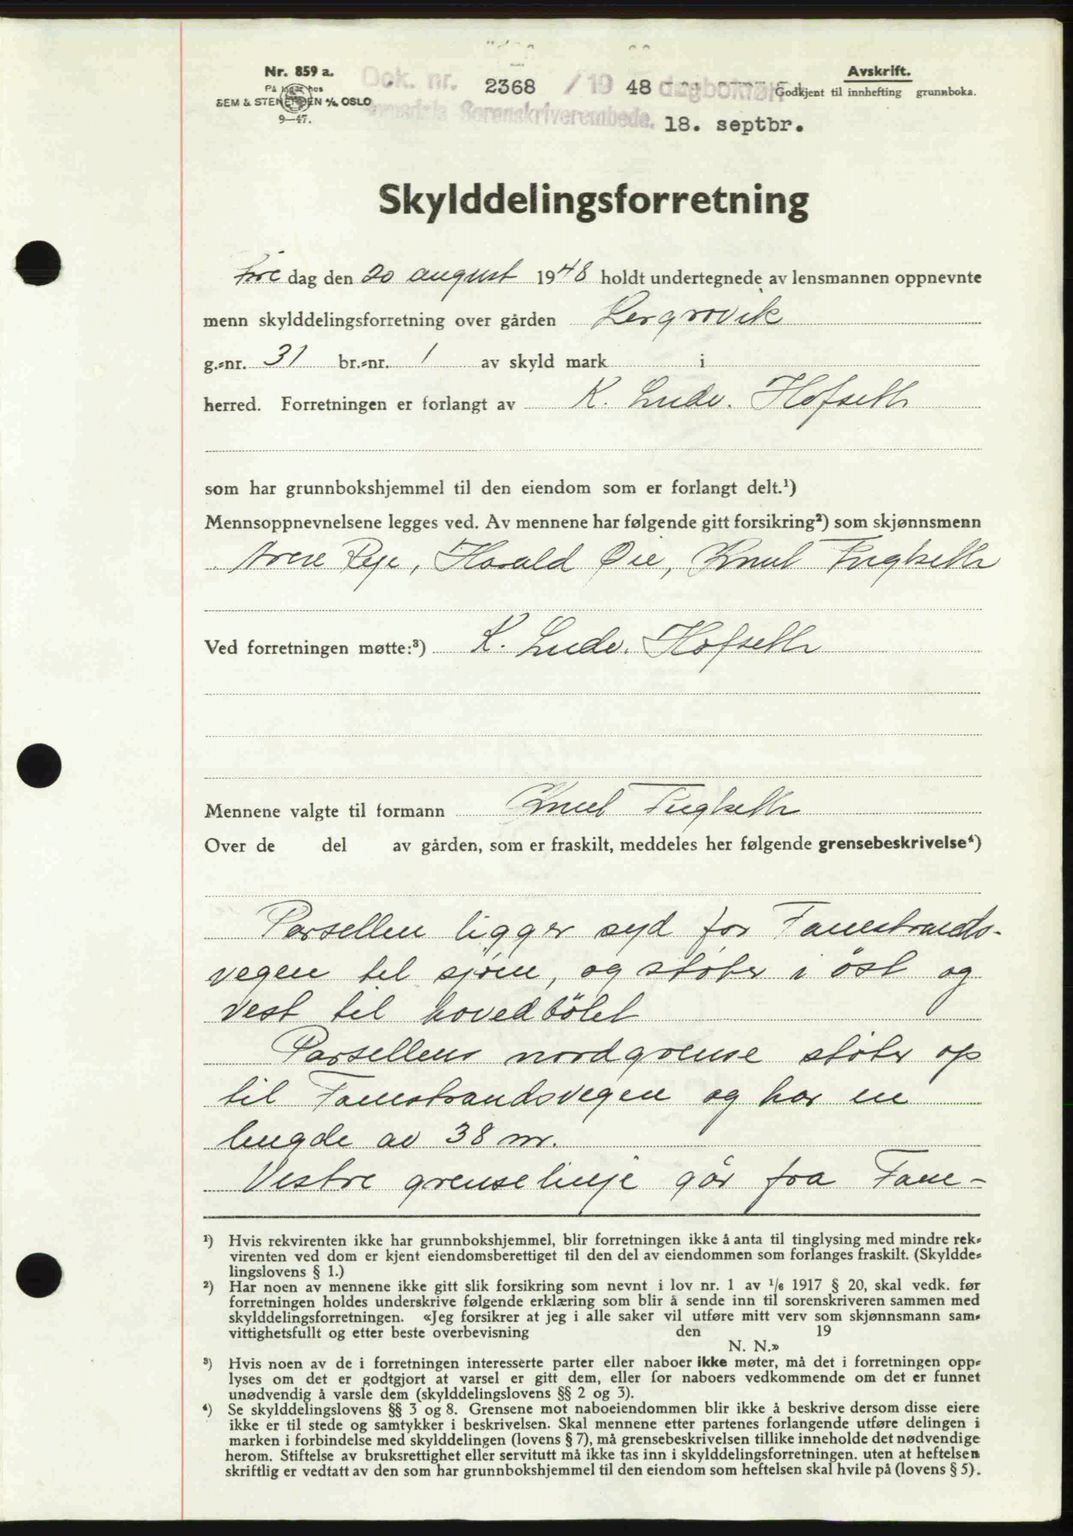 Nr. 859 a.
Dok. nr. 2368 / 19 48 dagboken
Avskrift.
På lager hos
Godkjent til innhefting grunnboka.
SEM & STENERSEN A/S OSLO
9—47.
Sorenskriverembede. 18. septbr.
Skylddelingsforretning
Fre dag den 20 august 1948 holdt undertegnede av lensmannen oppnevnte
menn skylddelingsforretning over gården Lergrovik
g.-nr. 31 br.-nr. 1 av skyld mark i
herred. Forretningen er forlangt av K. Ludv. Hofseth
som har grunnbokshjemmel til den eiendom som er forlangt delt.¹)
Mennsoppnevnelsene legges ved. Av mennene har følgende gitt forsikring²) som skjønnsmenn
Arne, Harald Øie, Knut Fuglseth
Ved forretningen møtte:³) K. Ludv. Hofseth
Mennene valgte til formann Knut Fuglseth
Over de del av gården, som er fraskilt, meddeles her følgende grensebeskrivelse⁴)
Parsellen ligger syd for Fanestrands-
vegen til sjøen, og støter i öst og
vest til hovedbölet
Parsellens nordgrense støter op
til Fanestrandsvegen og har en
lengde av 38 m.
Vestre grenselinje går fra Fane-
¹) Hvis rekvirenten ikke har grunnbokshjemmel, blir forretningen ikke å anta til tinglysing med mindre rek-
virenten ved dom er kjent eiendomsberettiget til den del av eiendommen som forlanges fraskilt. (Skyldde-
lingslovens § 1.)
²) Har noen av mennene ikke gitt slik forsikring som nevnt i lov nr. 1 av ¹/₆ 1917 § 20, skal vedk. før
forretningen holdes underskrive følgende erklæring som blir å sende inn til sorenskriveren sammen med
skylddelingsforretningen. «Jeg forsikrer at jeg i alle saker vil utføre mitt verv som skjønnsmann sam-
vittighetsfullt og etter beste overbevisning den 19
N. N.»
³) Hvis noen av de i forretningen interesserte parter eller naboer ikke møter, må det i forretningen opp-
lyses om det er godtgjort at varsel er gitt dem, eller for naboers vedkommende om det er funnet
unødvendig å varsle dem (skylddelingslovens §§ 2 og 3).
⁴) Se skylddelingslovens §§ 3 og 8. Grensene mot naboeiendommen blir ikke å beskrive dersom disse eiere
ikke er til stede og samtykker i beskrivelsen. Skal mennene etter partenes forlangende utføre delingen i
marken i forbindelse med skylddelingen (lovens § 7), må grensebeskrivelsen tillike inneholde det nødvendige
herom. Stiftelse av bruksrettighet eller servitutt må ikke tas inn i skylddelingsforretningen. uten at heftelsen
skriftlig er vedtatt av den som har grunnbokshjemmel til den eiendom som heftelsen skal hvile på (lovens § 5).